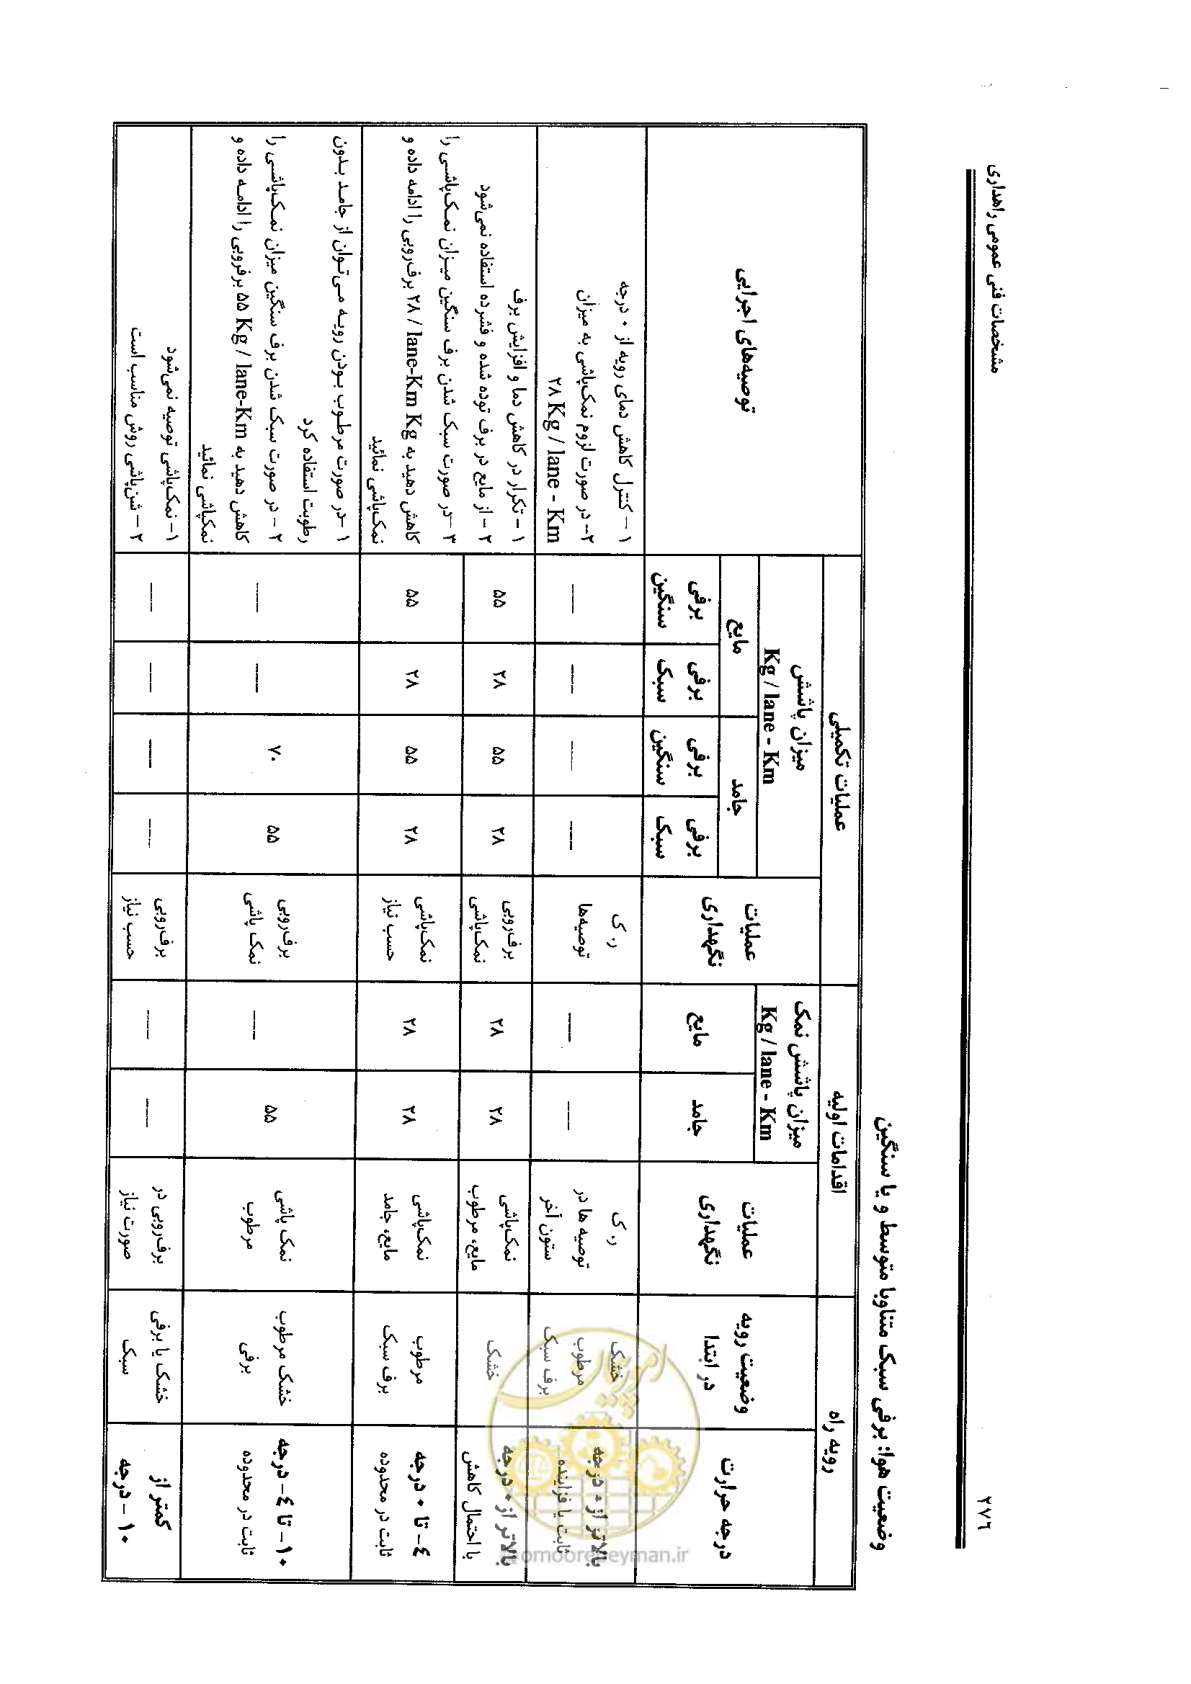 مشخصات فنی عمومی راهداری
۲۷۶
وضعیت هوا: برفی سبک متناوبا متوسط و یا سنگین
رویه راه
اقدامات اولیه
عملیات تکمیلی
توصیه‌های اجرایی
درجه حرارت
وضعیت رویه
در ابتدا
عملیات
نگهداری
میزان پاشش نمک
Kg / lane - Km
جامد
مایع
عملیات
نگهداری
میزان پاشش
Kg / lane - Km
جامد
مایع
برفی
سبک
برفی
سنگین
برفی
سبک
برفی
سنگین
بالاتر از ۰ درجه
ثابت یا فزاینده
خشک
مرطوب
برف سبک
ر. ک
توصیه ها در
ستون آخر
---
---
ر. ک
توصیه‌ها
---
---
---
---
۱ – کنترل کاهش دمای رویه از ۰ درجه
۲- در صورت لزوم نمک‌پاشی به میزان
۲۸ Kg / lane - Km
بالاتر از ۰ درجه
با احتمال کاهش
خشک
نمک‌پاشی
مایع، مرطوب
۲۸
۲۸
برف‌روبی
نمک‌پاشی
۲۸
۵۵
۲۸
۵۵
۱ – تکرار در کاهش دما و افزایش برف
۲ – از مایع در برف توده شده و فشرده استفاده نمی‌شود
۳ –در صورت سبک شدن برف سنگین میزان نمک‌پاشی را
کاهش دهید به ۲۸ / lane-Km Kg برف‌روبی را ادامه داده و
نمک‌پاشی نمائید
۴- تا ۰ درجه
ثابت در محدوده
مرطوب
برف سبک
نمک‌پاشی
مایع، جامد
۲۸
۲۸
نمک‌پاشی
حسب نیاز
۲۸
۵۵
۲۸
۵۵
۱۰- تا ۴- درجه
ثابت در محدوده
خشک مرطوب
برفی
نمک پاشی
مرطوب
۵۵
---
برف‌روبی
نمک پاشی
۵۵
۷۰
---
---
۱ –در صورت مرطوب بودن رویه می‌توان از جامد بدون
رطوبت استفاده کرد
۲ – در صورت سبک شدن برف سنگین میزان نمک‌پاشی را
کاهش دهید به ۵۵ Kg / lane-Km برفروبی را ادامه داده و
نمکپاشی نمائید
کمتر از
۱۰- درجه
خشک یا برفی
سبک
برف‌روبی در
صورت نیاز
---
---
برف‌روبی
حسب نیاز
---
---
---
---
۱- نمک‌پاشی توصیه نمی‌شود
۲ – شن‌پاشی روش مناسب است
omoorepeyman.ir